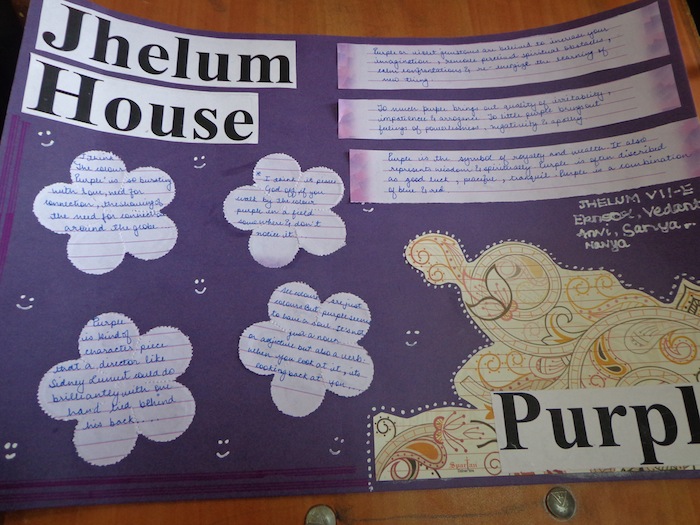 Jhelum
House
Purple or violet gemstones are believed to increase your
imagination, remove personal spiritual obstacles,
calm confrontations & re energize the learning of
new thing.
To much purple brings out quality of irritability,
impatience & arrogance. To little purple brings out
feelings of powerlessness, negativity & apathy
Purple is the symbol of royalty and wealth. It also
represents wisdom & spirituality. Purple is often discribed
as good luck, peaceful, tranquil. Purple is a combination
of blue & red.
JHELUM VII-E
Vedant
Anvi, Sanya
Navya
I think
The colour
Purple is so bursting
with love, need for
connection, the
the need for connection
around the globe..
I think it pisses
God off if you
walk by the colour
purple in a field
somewhere & don't
notice it.
Purple
is kind of
character piece
that a director like
Sidney Lumet could do
brilliantly with one
hand tied behind
his back.....
All colours are just
colours But purple seems
to have a soul. It's not
just a noun
or adjective but also a verb.
when you look at it, its
looking back at you....
Spartan
Purpl